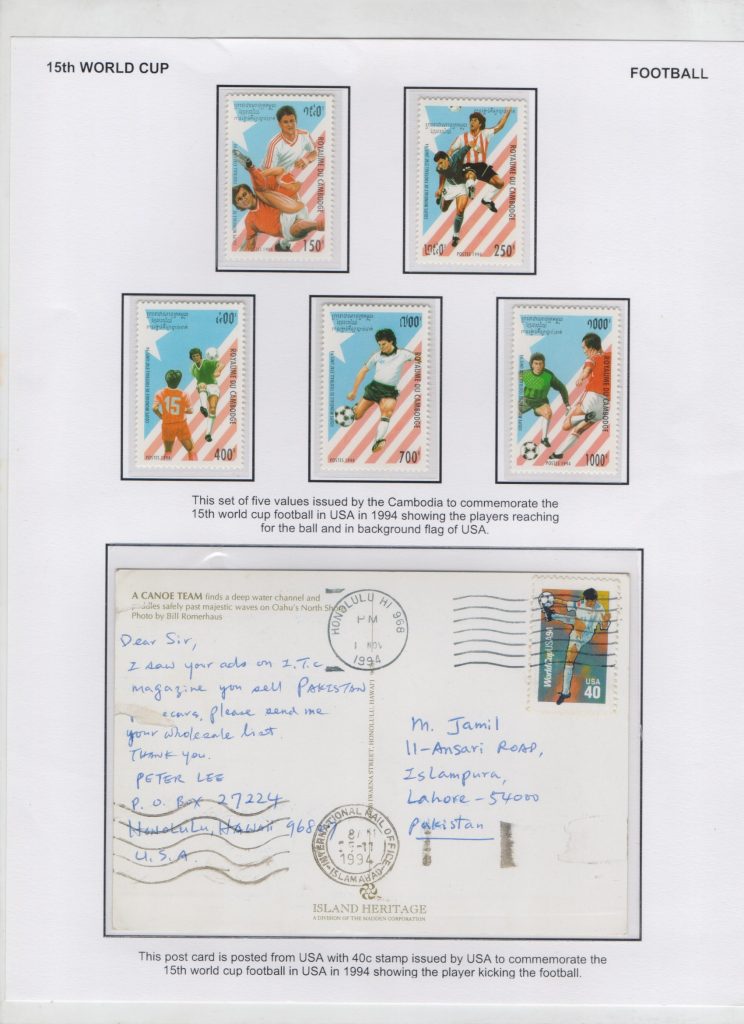 15th WORLD CUP
FOOTBALL
១៥០៛
ROYAUME DU CAMBODGE
POSTES 1994
150៛
ROYAUME DU CAMBODGE
២៥០៛
POSTES 1994
250៛
៤០០៛
ROYAUME DU CAMBODGE
15
POSTES 1994
400៛
៧០០៛
ROYAUME DU CAMBODGE
POSTES 1994
700៛
១០០០៛
ROYAUME DU CAMBODGE
POSTES 1994
1000៛
This set of five values issued by the Cambodia to commemorate the
15th world cup football in USA in 1994 showing the players reaching
for the ball and in background flag of USA.
A CANOE TEAM finds a deep water channel and
safely past majestic waves on Oahu's North
Photo by Bill Romerhaus
HONOLULU HI 968
PM
1 NOV
1994
WorldCupUSA94
USA
40
Dear Sir,
I saw your ads on I.T.C
magazine you sell PAKISTAN
please send me
your wholesale list.
THANK YOU.
PETER LEE
P.O. BOX 27224
Honolulu, HAWAII
U.S.A.
M. Jamil
11-Ansari ROAD,
Islampura,
Lahore-54000
Pakistan
STREET, HONOLULU, HAWAII
INTERNATIONAL MAIL OFFICE
1994
ISLAMABAD
ISLAND HERITAGE
A DIVISION OF THE MADDEN CORPORATION
This post card is posted from USA with 40c stamp issued by USA to commemorate the
15th world cup football in USA in 1994 showing the player kicking the football.